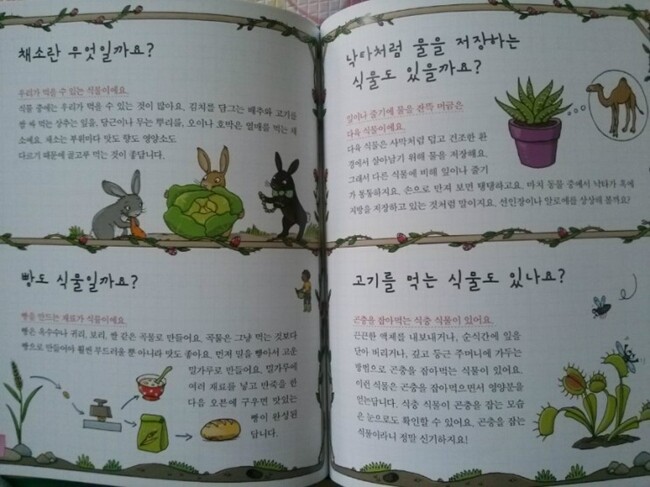 채소란 무엇일까요?
우리가 먹을 수 있는 식물이에요.
식물 중에는 우리가 먹을 수 있는 것이 많아요. 김치를 담그는 배추와 고기를
쌈 싸 먹는 상추는 잎을, 당근이나 무는 뿌리를, 오이나 호박은 열매를 먹는 채
소예요. 채소는 부위마다 맛도 향도 영양소도
다르기 때문에 골고루 먹는 것이 좋답니다.
빵도 식물일까요?
빵을 만드는 재료가 식물이에요.
빵은 옥수수나 귀리, 보리, 쌀 같은 곡물로 만들어요. 곡물은 그냥 먹는 것보다
빵으로 만들어야 훨씬 부드러울 뿐 아니라 맛도 좋아요. 먼저 밀을 빻아서 고운
밀가루로 만들어요. 밀가루에
여러 재료를 넣고 반죽을 한
다음 오븐에 구우면 맛있는
빵이 완성된
답니다.
낙타처럼 물을 저장하는
식물도 있을까요?
잎이나 줄기에 물을 잔뜩 머금은
다육 식물이에요.
다육 식물은 사막처럼 덥고 건조한 환
경에서 살아남기 위해 물을 저장해요.
그래서 다른 식물에 비해 잎이나 줄기
가 통통하지요. 손으로 만져 보면 탱탱하고요. 마치 동물 중에서 낙타가 혹에
지방을 저장하고 있는 것처럼 말이지요. 선인장이나 알로에를 상상해 볼까요?
고기를 먹는 식물도 있나요?
곤충을 잡아먹는 식충 식물이 있어요.
끈끈한 액체를 내보내거나, 순식간에 잎을
닫아 버리거나, 길고 둥근 주머니에 가두는
방법으로 곤충을 잡아먹는 식물이 있어요.
이런 식물은 곤충을 잡아먹으면서 영양분을
얻는답니다. 식충 식물이 곤충을 잡는 모습
은 눈으로도 확인할 수 있어요. 곤충을 잡는
식물이라니 정말 신기하지요!